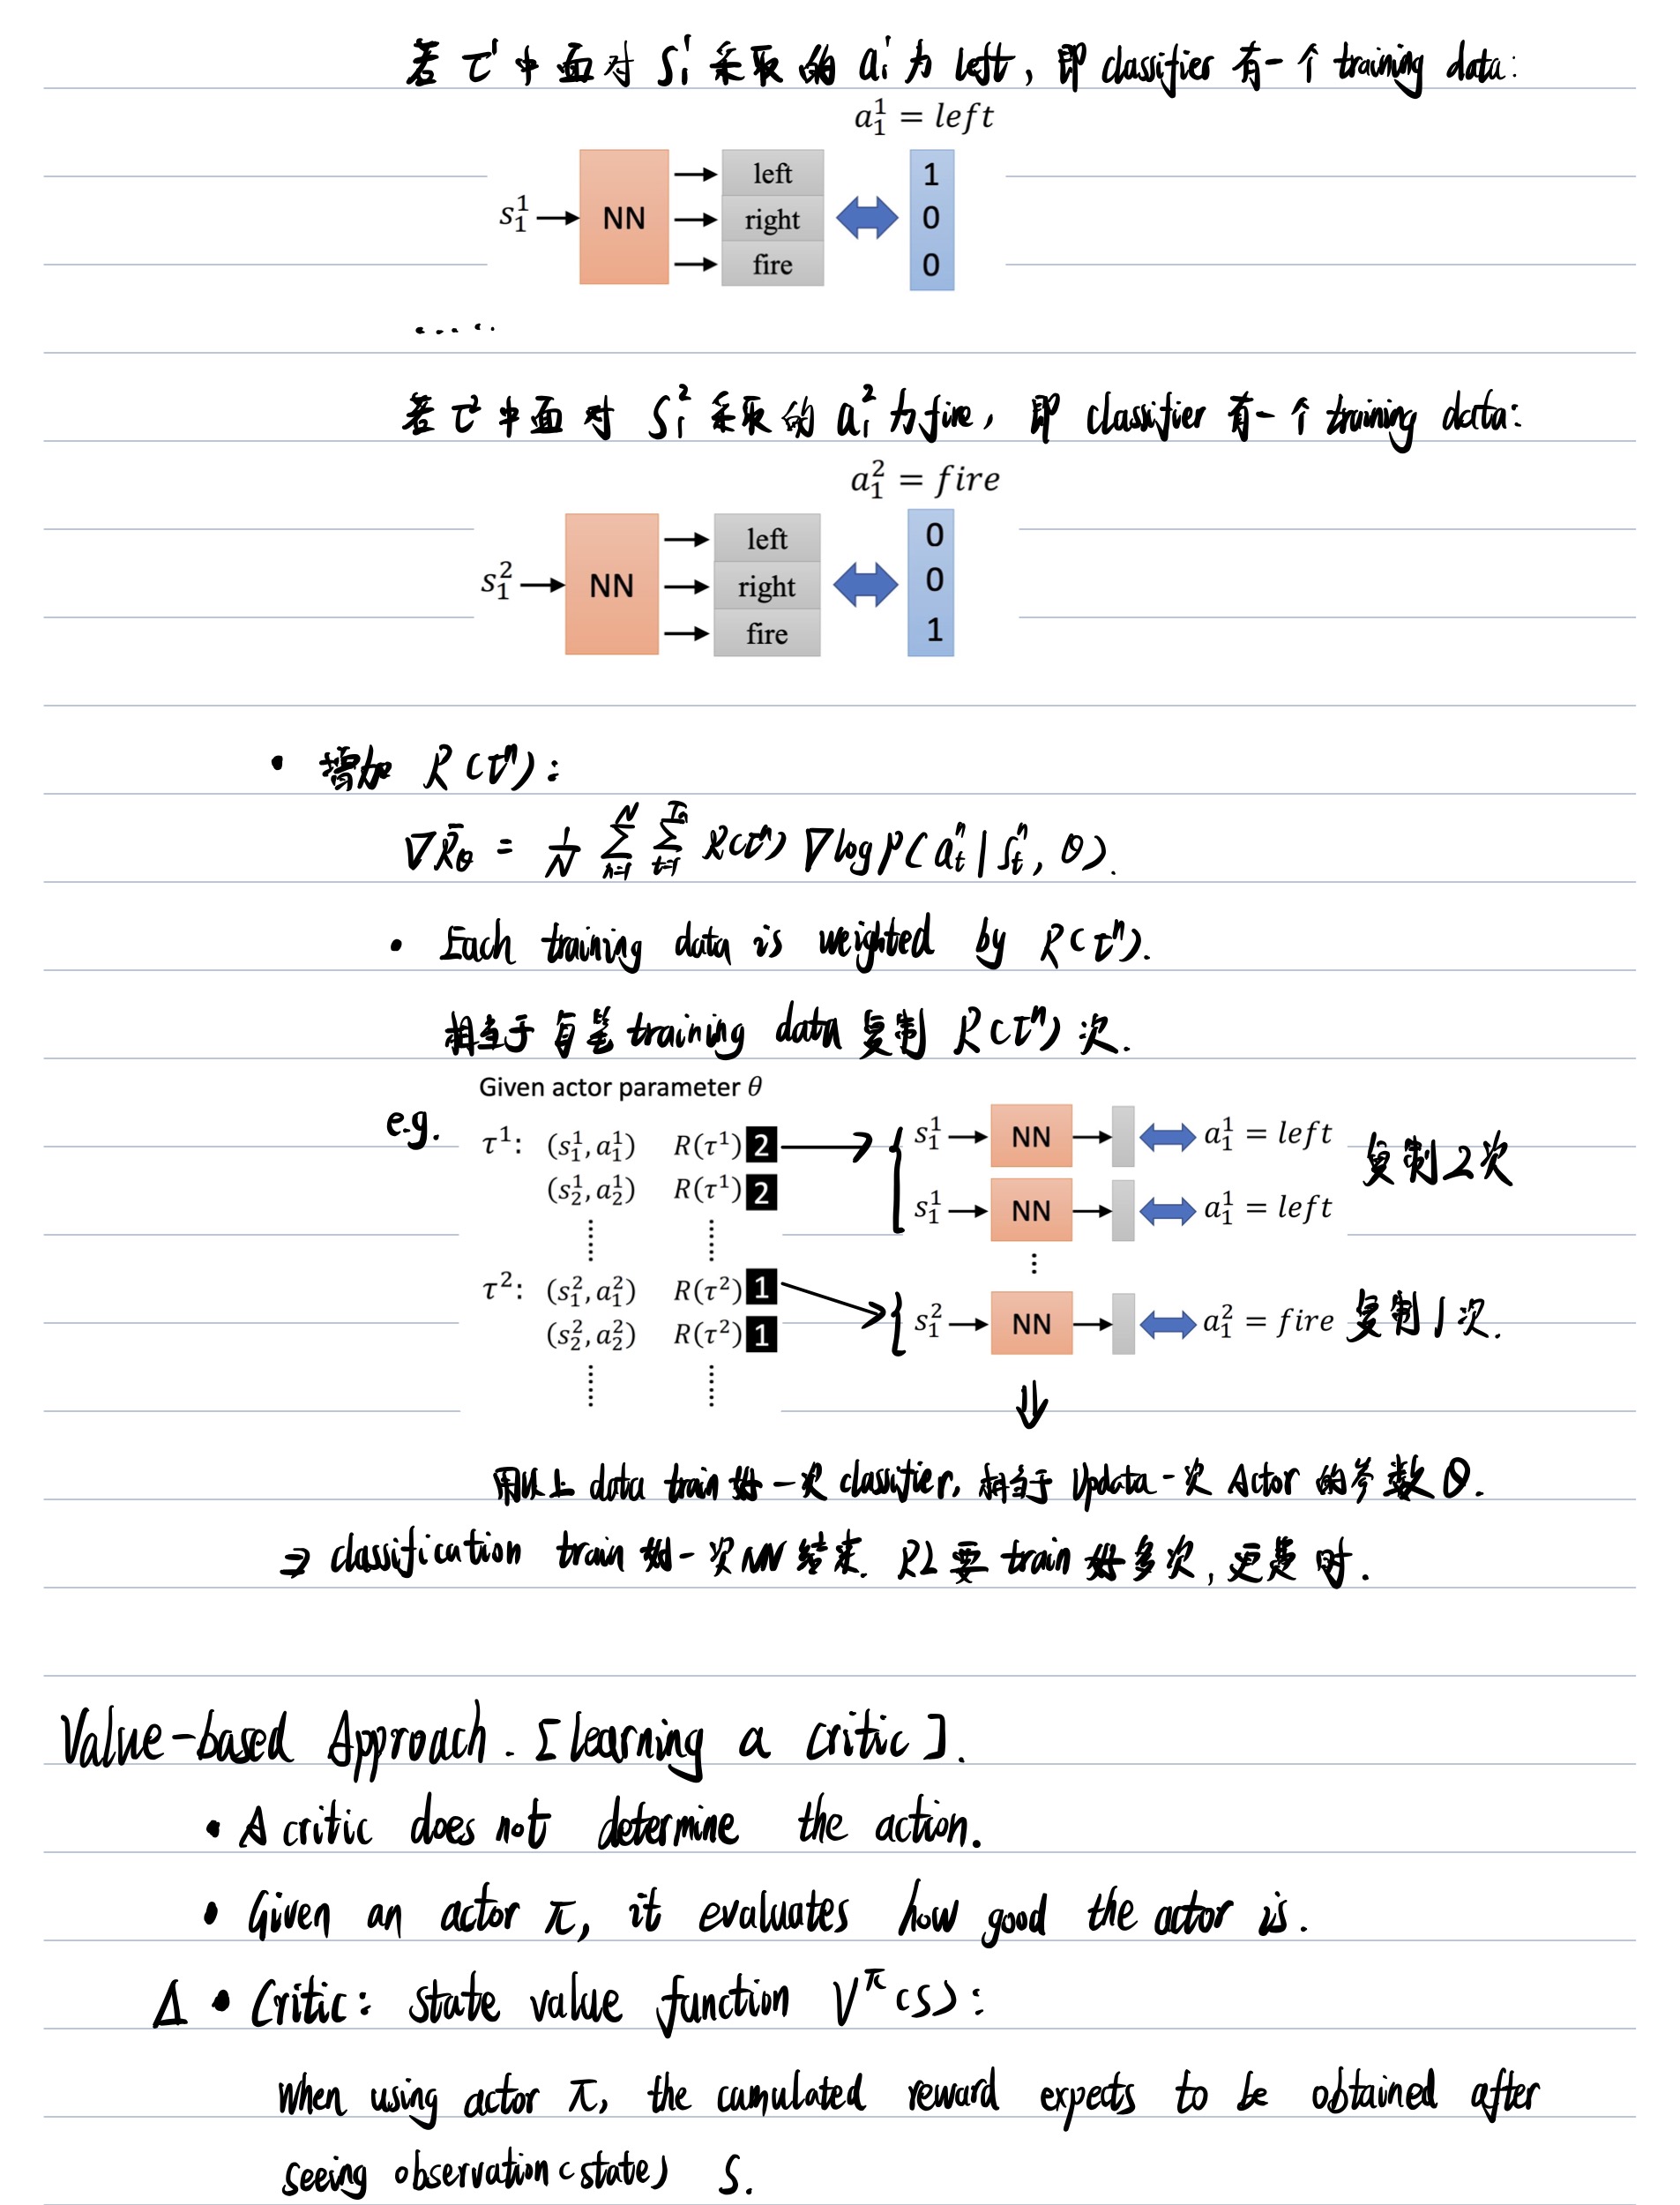 若 τ¹ 中面对 S₁¹ 采取的 a₁¹ 为 left, 即 classifier 有一个 training data:
a₁¹ = left
left 1
s₁¹ NN right 0
fire 0
.....
若 τ² 中面对 S₁² 采取的 a₁² 为 fire, 即 classifier 有一个 training data:
a₁² = fire
left 0
s₁² NN right 0
fire 1
• 增加 R(τⁿ):
∇R̄θ = 1/N Σ_{n=1}^{N} Σ_{t=1}^{Tn} R(τⁿ) ∇log p(aₜⁿ | sₜⁿ, θ).
• Each training data is weighted by R(τⁿ).
相当于每笔 training data 复制 R(τⁿ) 次.
Given actor parameter θ
e.g.
τ¹: (s₁¹, a₁¹) R(τ¹) 2 → { s₁¹ → NN → a₁¹ = left 复制2次
(s₂¹, a₂¹) R(τ¹) 2 s₁¹ → NN → a₁¹ = left
⋮ ⋮ ⋮
τ²: (s₁², a₁²) R(τ²) 1 → { s₁² → NN → a₁² = fire 复制1次.
(s₂², a₂²) R(τ²) 1
⋮ ⋮ ⇓
用以上 data train 好一次 classifier, 相当于 Updata 一次 Actor 的参数 θ.
⇒ classification train 好一次 NN 结束. RL 要 train 好多次, 更费时.
Value-based Approach. [learning a critic].
• A critic does not determine the action.
• Given an actor π, it evaluates how good the actor is.
Δ • Critic: state value function V^π(s):
When using actor π, the cumulated reward expects to be obtained after
seeing observation (state) s.